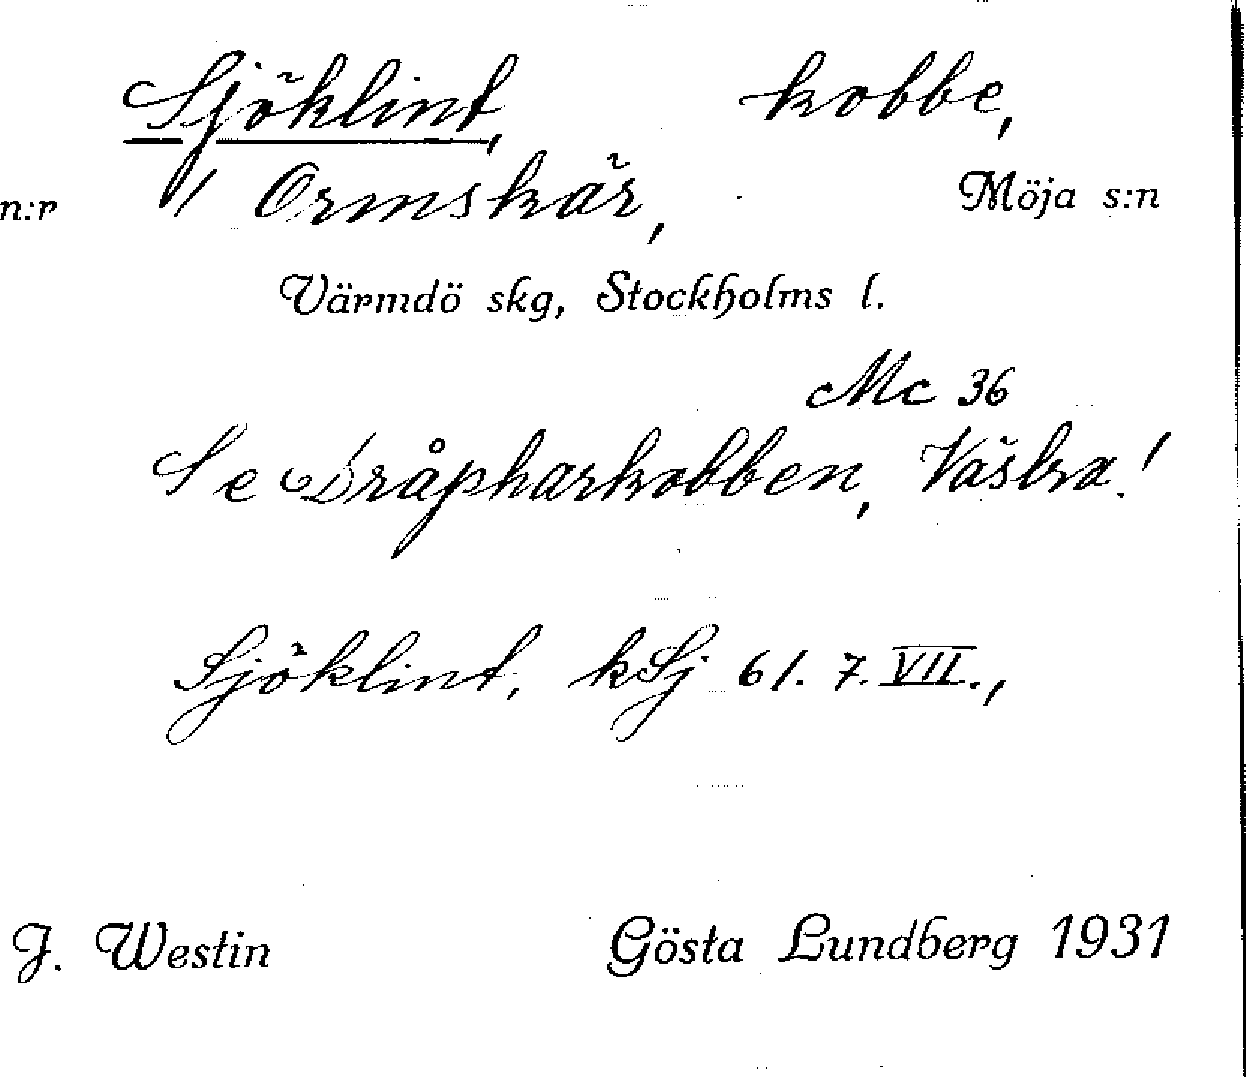 Sjöklint, kobbe,
n:r 1 Ormskär, Möja s:n
Värmdö skg, Stockholms l.
Mc 36
Se Dråpharkobben, Västra!
Sjöklint, kSj 61. 7. VII.,
J. Westin Gösta Lundberg 1931